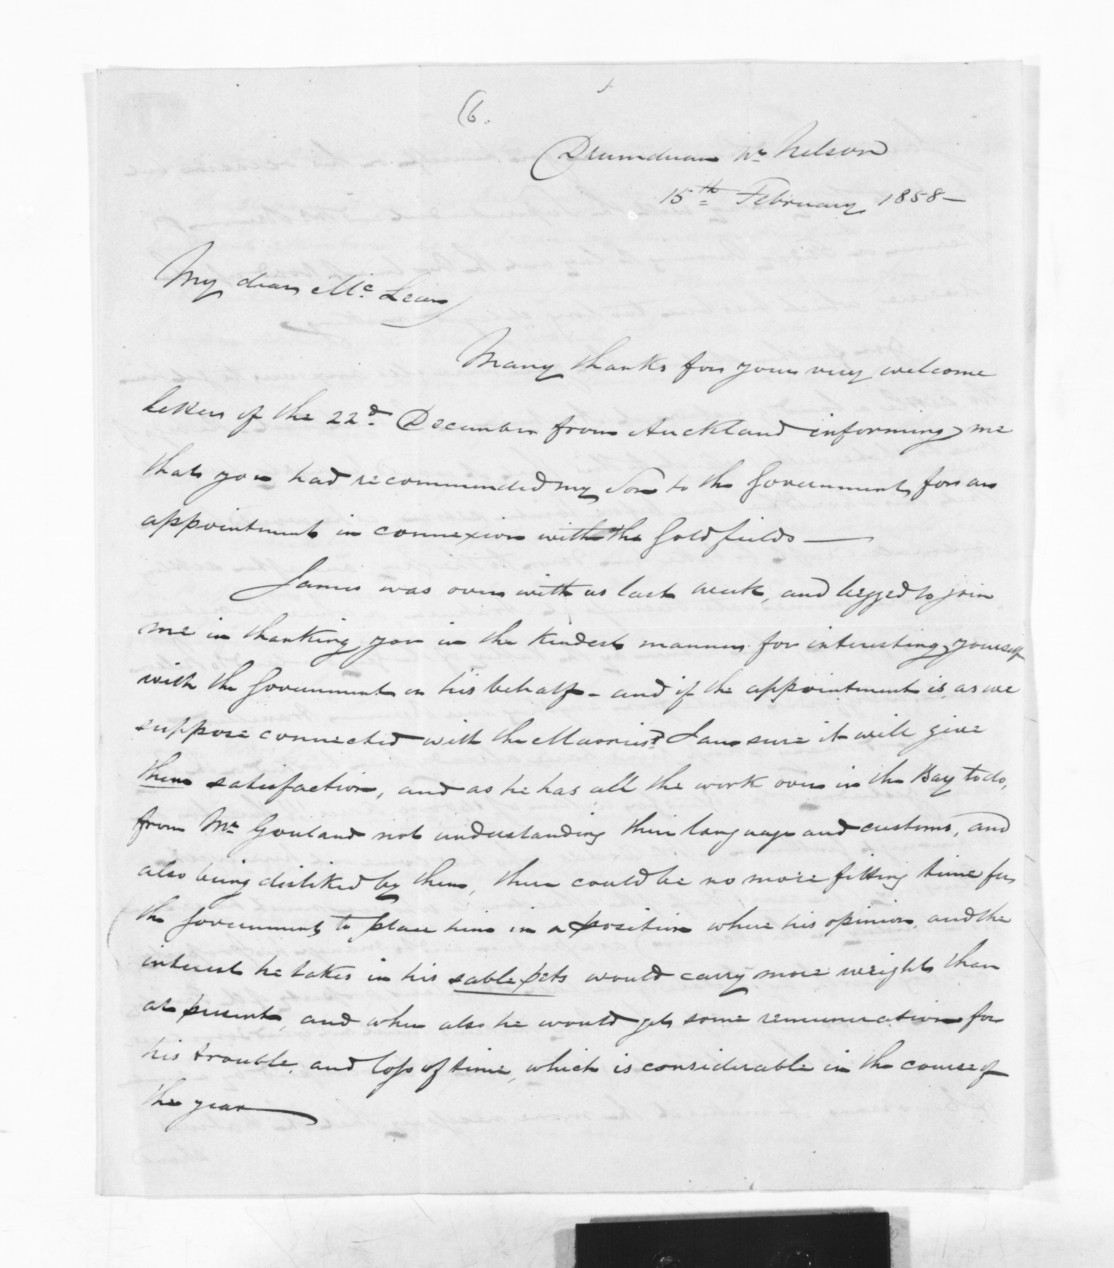 (6.
Drumduan Nr Nelson
15th February 1858 —
My dear McLean
Many thanks for your very welcome
letter of the 22d December from Auckland informing me
that you had recommended my Son to the Government for an
appointment in connexion with the Goldfields —
James was over with us last week, and begged to join
me in thanking you in the kindest manner for interesting yourself
with the Government on his behalf - and if the appointment is as we
suppose connected with the Maories? I am sure it will give
them satisfaction, and as he has all the work over in the Bay to do,
from Mr Gouland not understanding their language and customs, and
also being disliked by them, there could be no more fitting time for
the Government to place him in a position where his opinion and the
interest he takes in his sable pets would carry more weight than
at present, and when also he would get some remuneration for
his trouble, and loss of time, which is considerable in the course of
the year